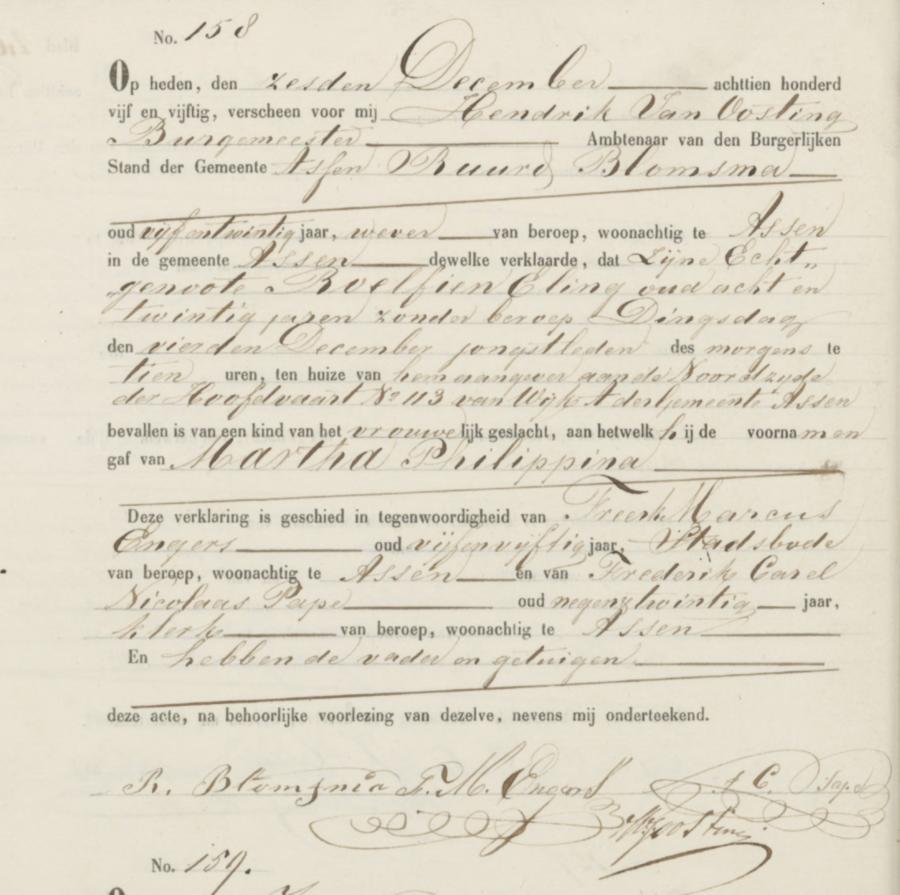 No. 158
Op heden, den zesden December achttien honderd
vijf en vijftig, verscheen voor mij Hendrik Van Oosting
Burgemeester Ambtenaar van den Burgerlijken
Stand der Gemeente Assen Ruurd Blomsma
oud vijf entwintig jaar, wever van beroep, woonachtig te Assen
in de gemeente Assen dewelke verklaarde, dat zijne Echt„
„genoote Roelfien Eling oud acht en
twintig jaren zonder beroep Dingsdag
den vierden December jongstleden des morgens te
tien uren, ten huize van hem aangever aan de Noordzyde
der Hoofdvaart No 113 van Wijk A der Gemeente Assen
bevallen is van een kind van het vrouwelijk geslacht, aan hetwelk hij de voornamen
gaf van Martha Philippina
Deze verklaring is geschied in tegenwoordigheid van Freerk Marcus
Engers oud vijfenvijftig jaar, Stadsbode
van beroep, woonachtig te Assen en van Frederik Carel
Nicolaas Pape oud negenentwintig jaar,
klerk van beroep, woonachtig te Assen
En hebben de vader en getuigen
deze acte, na behoorlijke voorlezing van dezelve, nevens mij onderteekend.
R. Blomsma F. M. Engers F C. Pape
HVOosting
No. 159.